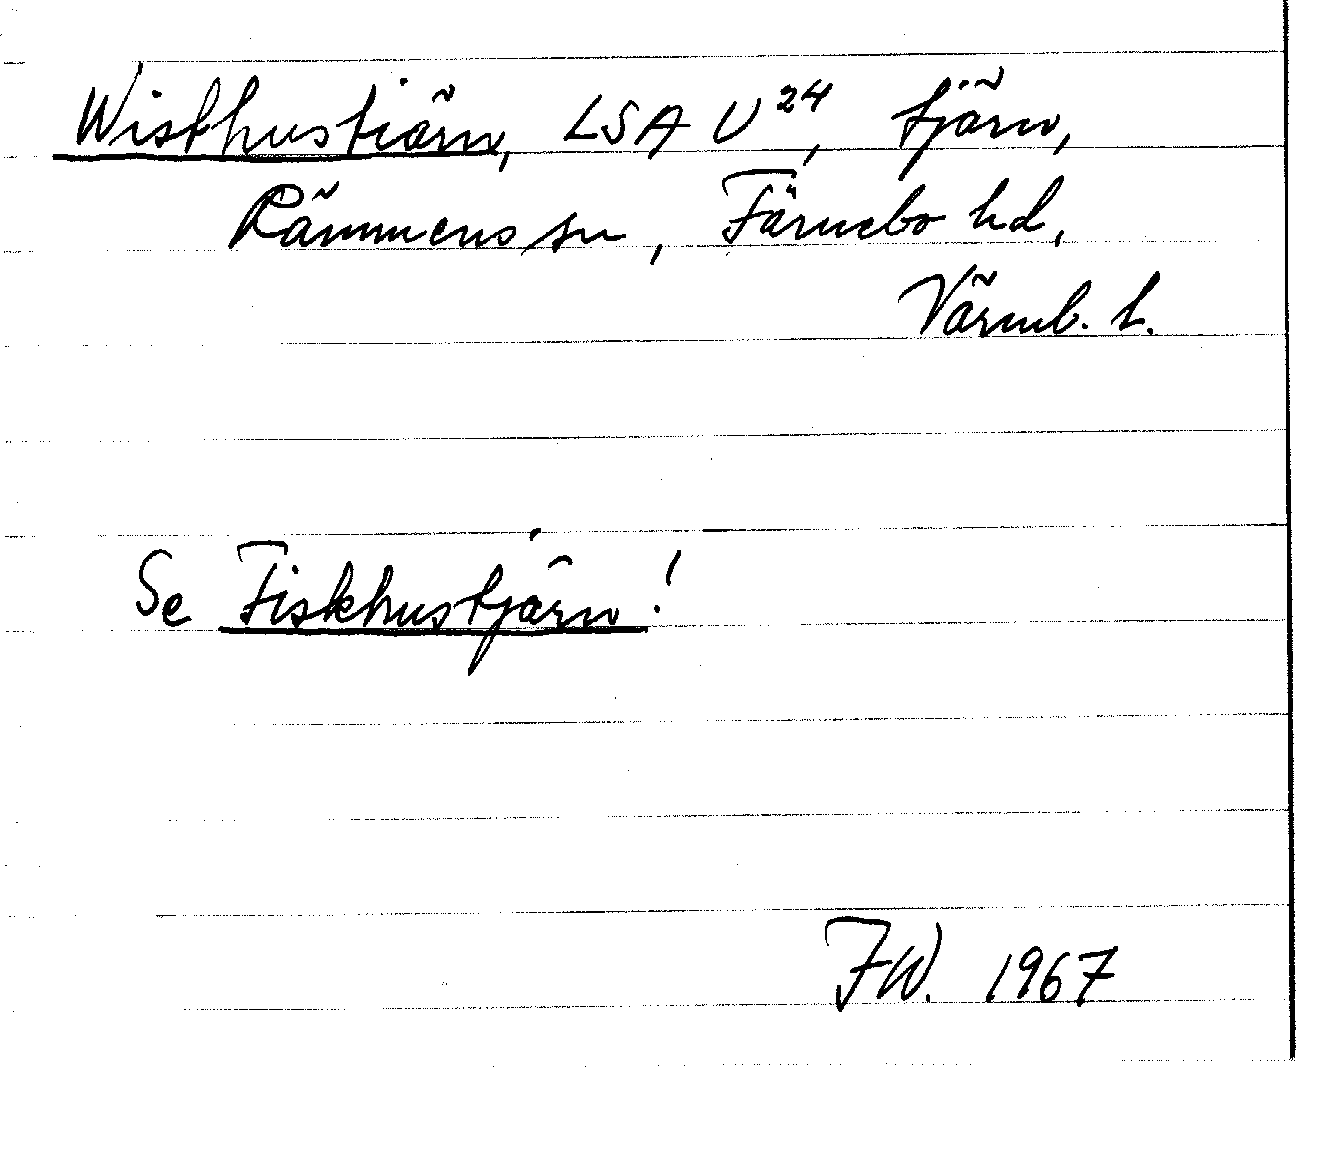 Wiskhustiärn, LSA U²⁴, tjärn,
Rämmens sn, Färnebo hd,
Värml. l.
Se Fiskhustjärn!
FW. 1967